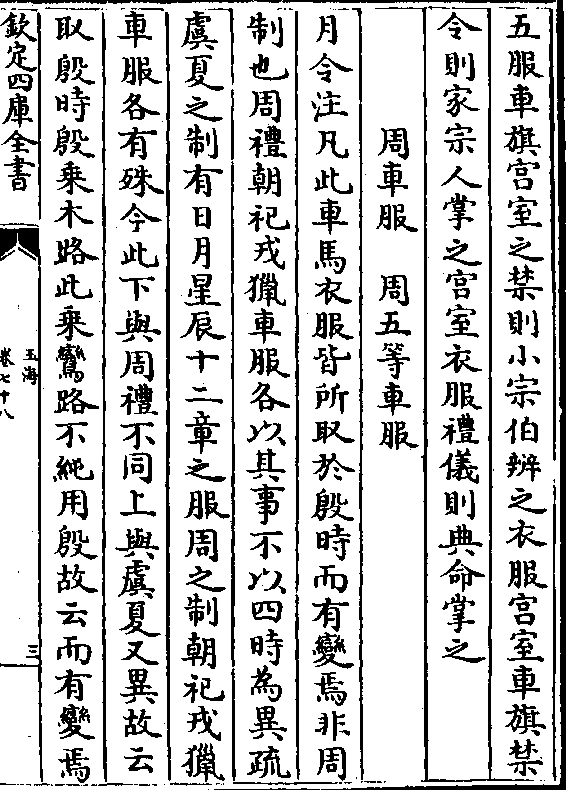 五服車旗宫室之禁則小宗伯辨之衣服宫室車旗禁
令則家宗人掌之宫室衣服禮儀則典命掌之
周車服　周五等車服
月令注凡此車馬衣服皆所取於殷時而有變焉非周
制也周禮朝祀戎獵車服各以其事不以四時為異疏
虞夏之制有日月星辰十二章之服周之制朝祀戎獵
車服各有殊今此下與周禮不同上與虞夏又異故云
取殷時殷乗木路此乗鸞路不純用殷故云而有變焉
欽定四庫全書
玉海
卷七十八
三